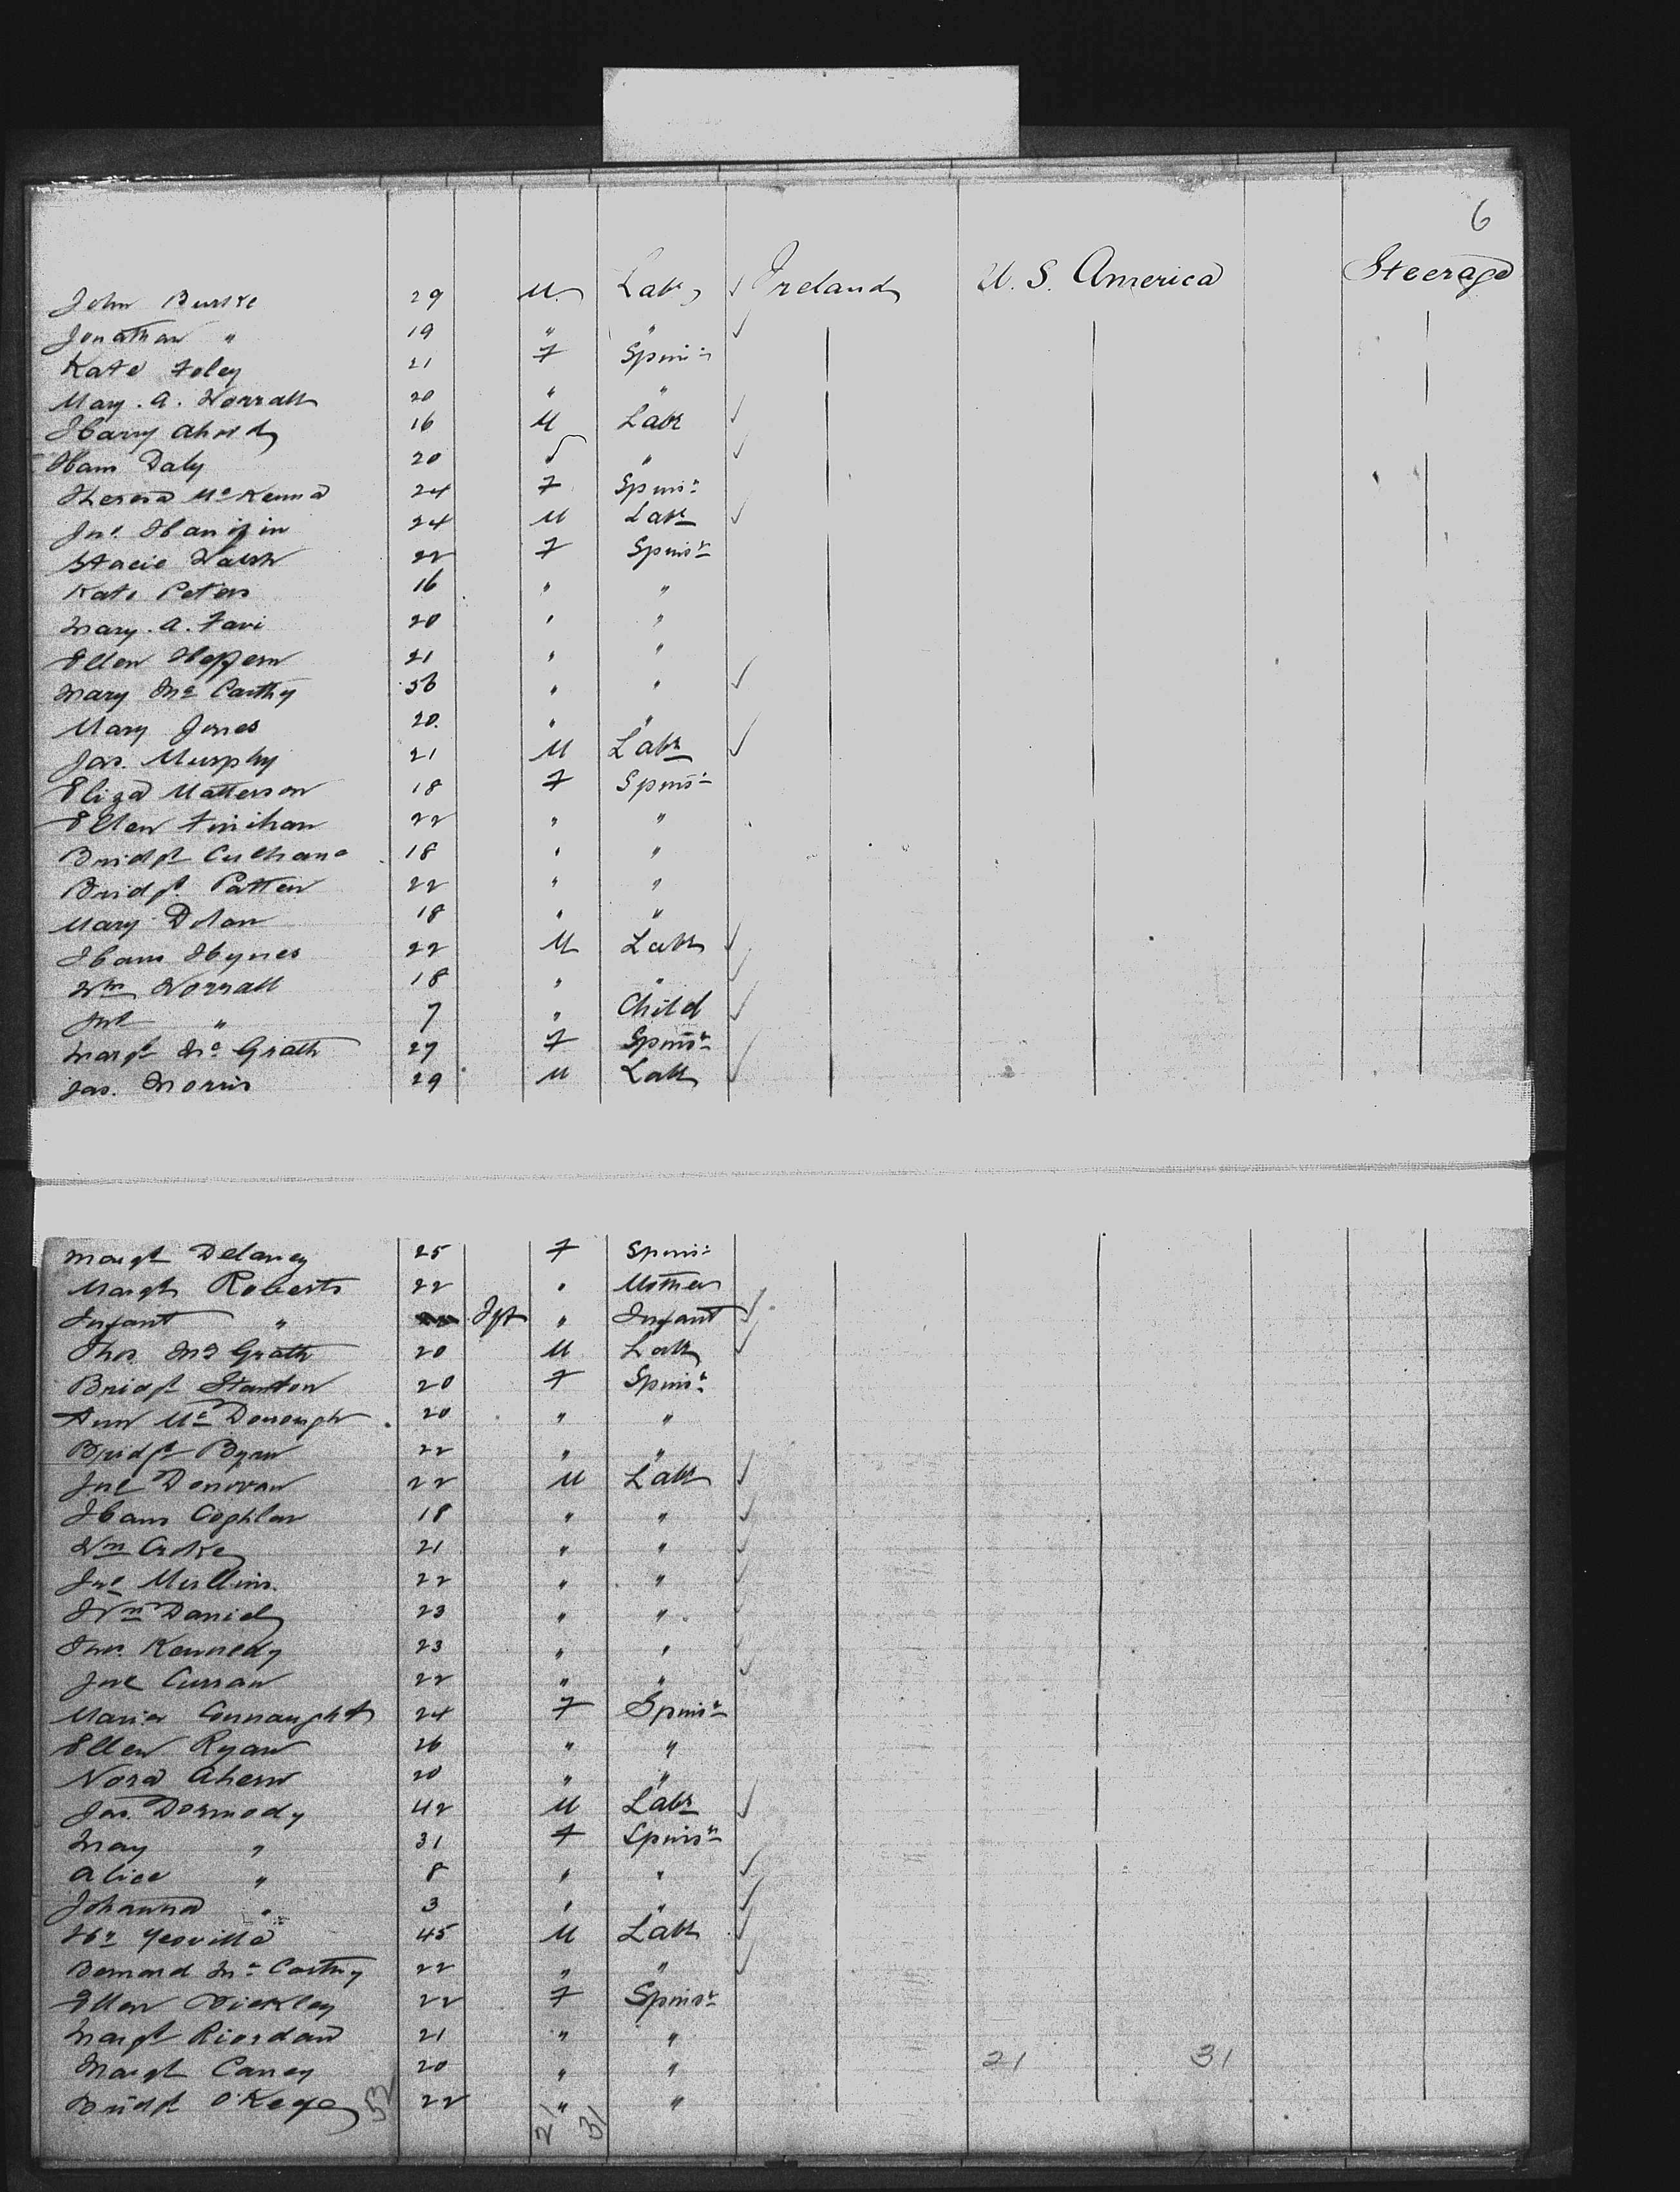 6
John Burke 29 M. Labr Ireland U. S. America Steerage
Jonathan " 19 " "
Kate Foley 21 F Spinr
Mary. A. Worrall 20 " "
Harry 16 M Labr
Daly 20 "
Theresa McKenna 24 F Spinsr
Jno. Hanifin 24 M Labr
Stacie Walsh 22 F Spinsr
Kate Peters 16 " "
Mary. A. 20 " "
Ellen 21 " "
Mary Mc Carthy " "
Mary Jones 20. " "
Jas. Murphy 21 M Labr
Eliza Matterson 18 F Spinsr
Ellen Finihan 22 " "
Bridgt Culhane 18 " "
Bridgt Patten 22 " "
Mary Dolan 18 " "
Hynes 22 M Labr
Wm Worrall 18 " "
Jno " 7 " Child
Margt Mc Grath 27 F Spinsr
Jas. Morris 29 M Labr
Margt Delaney 25 F Spinsr
Margt Roberts 22 " Mother
Infant " Inft " Infant
Thos Mc Grath 20 M Labr
Bridgt Stanton 20 F Spinsr
Ann Mc Donough 20 " "
Bridgt Ryan 22 " "
Jno Donovan 22 M Labr
Coghlan 18 " "
Wm Croke 21 " "
Jno Mullins. 22 " "
Wm Daniel 23 " "
Thos. Kennedy 23 " "
Jno Curran 22 " "
Maria Connaught 24 F Spinsr
Ellen Ryan 26 " "
Nora Ahern 20 " "
Jas. Dormody 42 M Labr
May " 31 F Spinsr
Alice " 8 " "
Johanna " 3 " "
45 M Labr
Bernard Mc Carthy 22 " "
Ellen 22 F Spinsr
Margt Riordan 21 " "
Margt Caney 20 " " 21 31
Bridgt O'Keefe 52 22 " "
21 31